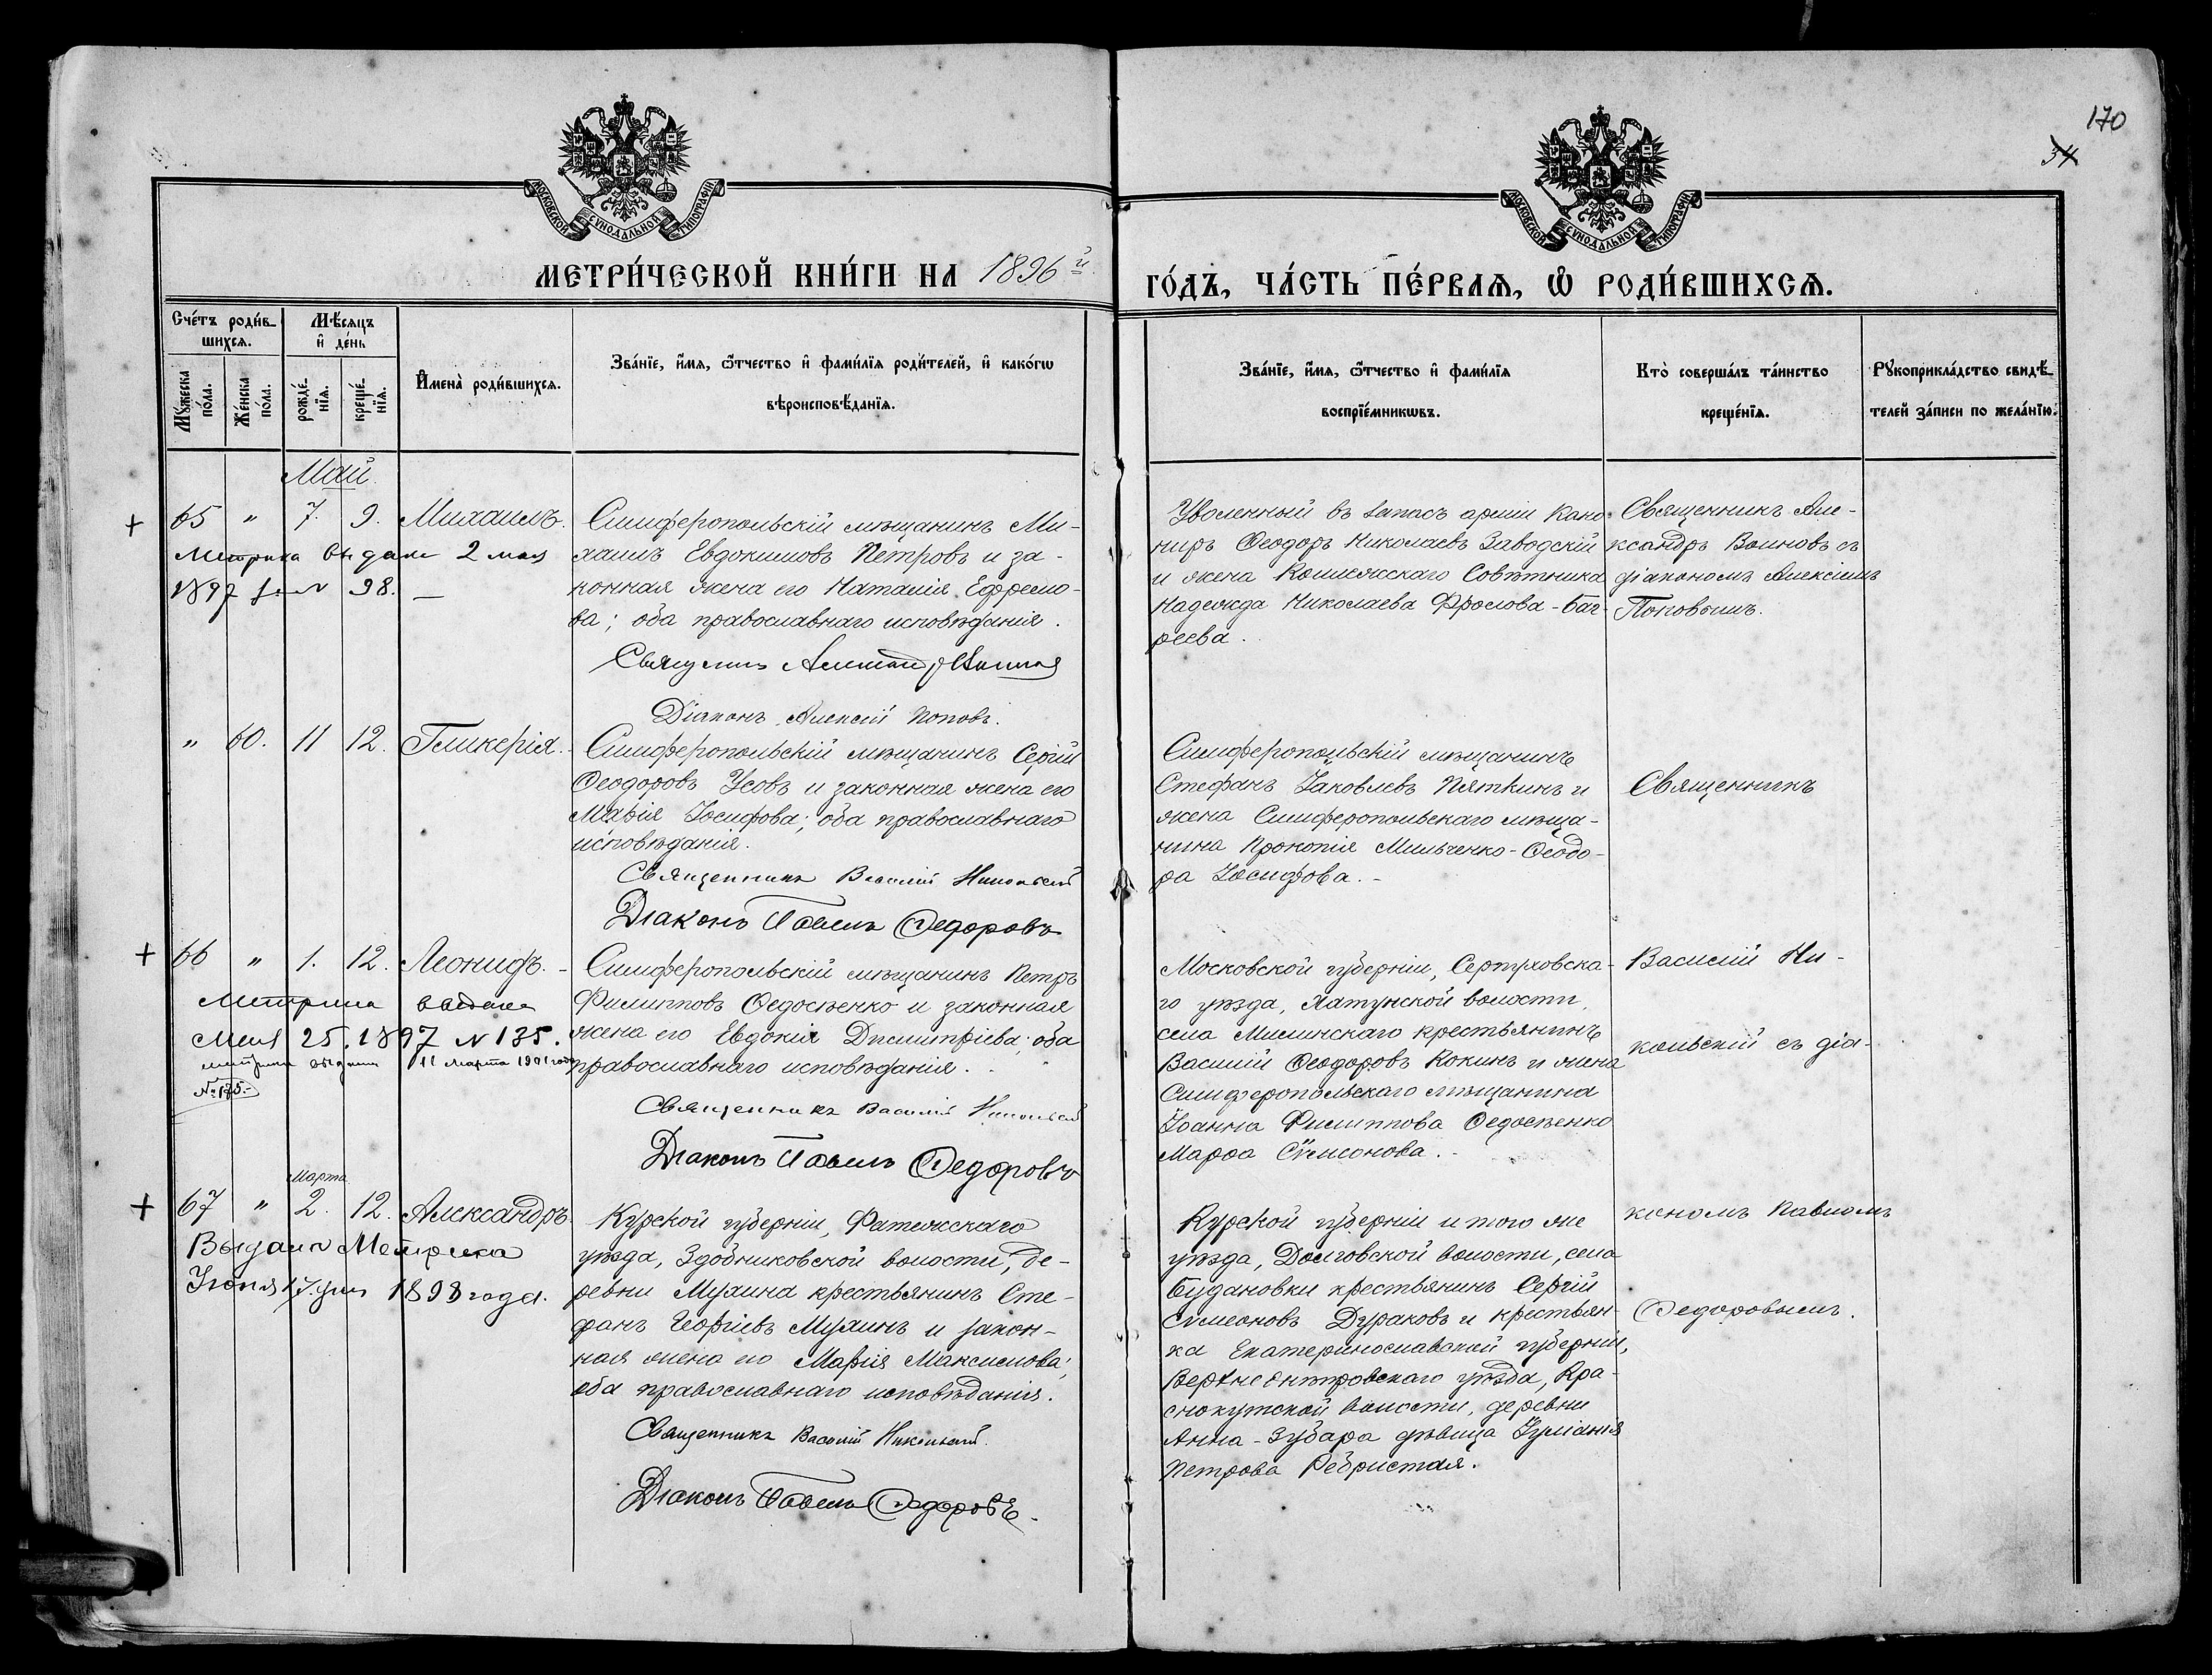 170
34
МОСКОВСКОЙ СУНОДАЛЬНОЙ ТИПОГРАФІИ
МОСКОВСКОЙ СУНОДАЛЬНОЙ ТИПОГРАФІИ
МЕТРИ́ЧЕСКОЙ КНИ́ГИ НА 1896й
ГО́ДЪ, ЧА́СТЬ ПЕ́РВАѦ, Ѡ҆ РОДИ́ВШИХСѦ.
Сче́тъ роди́в-
шихсѧ.
Мꙋжеска по́ла.
Же́нска по́ла.
Мѣ́сѧцъ и҆ де́нь
рожде́нїѧ.
креще́нїѧ.
И҆мена̀ роди́вшихсѧ.
Зва́нїе, и҆́мѧ, ѻ҆́тчество и҆ фами́лїѧ роди́телей, и҆ како́гѡ
вѣроисповѣ́данїѧ.
Зва́нїе, и҆́мѧ, ѻ҆́тчество и҆ фами́лїѧ
воспрїе́мникѡвъ.
Кто̀ соверша́лъ та́инство
креще́нїѧ.
Рꙋкоприкла́дство свидѣ́-
телей за́писи по жела́нїю.
Май.
65 " 7. 9. Михаилъ.
Метрика выдана 2 мая
1897 г. N 98. —
Симферопольскій мѣщанинъ Ми-
хаилъ Евдокимовъ Петровъ и за-
конная жена его Наталія Ефремо-
ва; оба православнаго исповѣданія.
Священникъ Александръ Воиновъ
Діаконъ Алексій Поповъ.
Уволенный въ запасъ арміи кано-
ниръ Ѳеодоръ Николаевъ Заводскій
и жена Коллежскаго Совѣтника
Надежда Николаева Фролова-Баг-
реева.
Священникъ Але-
ксандръ Воиновъ съ
діакономъ Алексіемъ
Поповымъ.
" 60. 11 12. Гликерія.
Симферопольскій мѣщанинъ Сергій
Ѳеодоровъ Усовъ и законная жена его
Марія Іосифова; оба православнаго
исповѣданія.
Священникъ Василій Никольскій
Діаконъ Павелъ Ѳедоровъ
Симферопольскій мѣщанинъ
Стефанъ Іаковлевъ Пяткинъ и
жена Симферопольскаго мѣща-
нина Прокопія Мильченко-Ѳеодо-
ра Іосифова.-
Священникъ
66 " 1. 12. Леонидъ.-
Метрика выдана
Мая 25. 1897 N 135.
метрика выдана 11 марта 1901 года
№ 135.-
Симферопольскій мѣщанинъ Петръ
Филипповъ Ѳедосѣенко и законная
жена его Евдокія Димитріева; оба
православнаго исповѣданія.
Священникъ Василій Никольскій
Діаконъ Павелъ Ѳедоровъ
Московской губерніи, Серпуховска-
го уѣзда, Хатунской волости,
села Мишинскаго крестьянинъ
Василій Ѳеодоровъ Кокинъ и жена
Симферопольскаго мѣщанина
Іоанна Филиппова Ѳедосѣенко
Марѳа Сѵмеонова.-
Василій Ни-
кольскій съ діа-
Марта
67 " 2. 12. Александръ.
Выдана Метрика
Іюня 17 дня 1898 года.
Курской губерніи, Фатежскаго
уѣзда, Здобниковской волости, де-
ревни Мухина крестьянинъ Сте-
фанъ Георгіевъ Мухинъ и закон-
ная жена его Марія Максимова;
оба православнаго исповѣданія.
Священникъ Василій Никольскій.
Діаконъ Павелъ Ѳедоровъ.
Курской губерніи и того же
уѣзда, Долговской волости, села
Будановки крестьянинъ Сергій
Сѵмеоновъ Дураковъ и крестьян-
ка Екатеринославской губерніи,
Верхнеднѣпровскаго уѣзда, Кра-
снокутской волости, деревни
Анна-Зубара дѣвица Іуліанія
Петрова Ребристая.
кономъ Павломъ
Ѳедоровымъ.